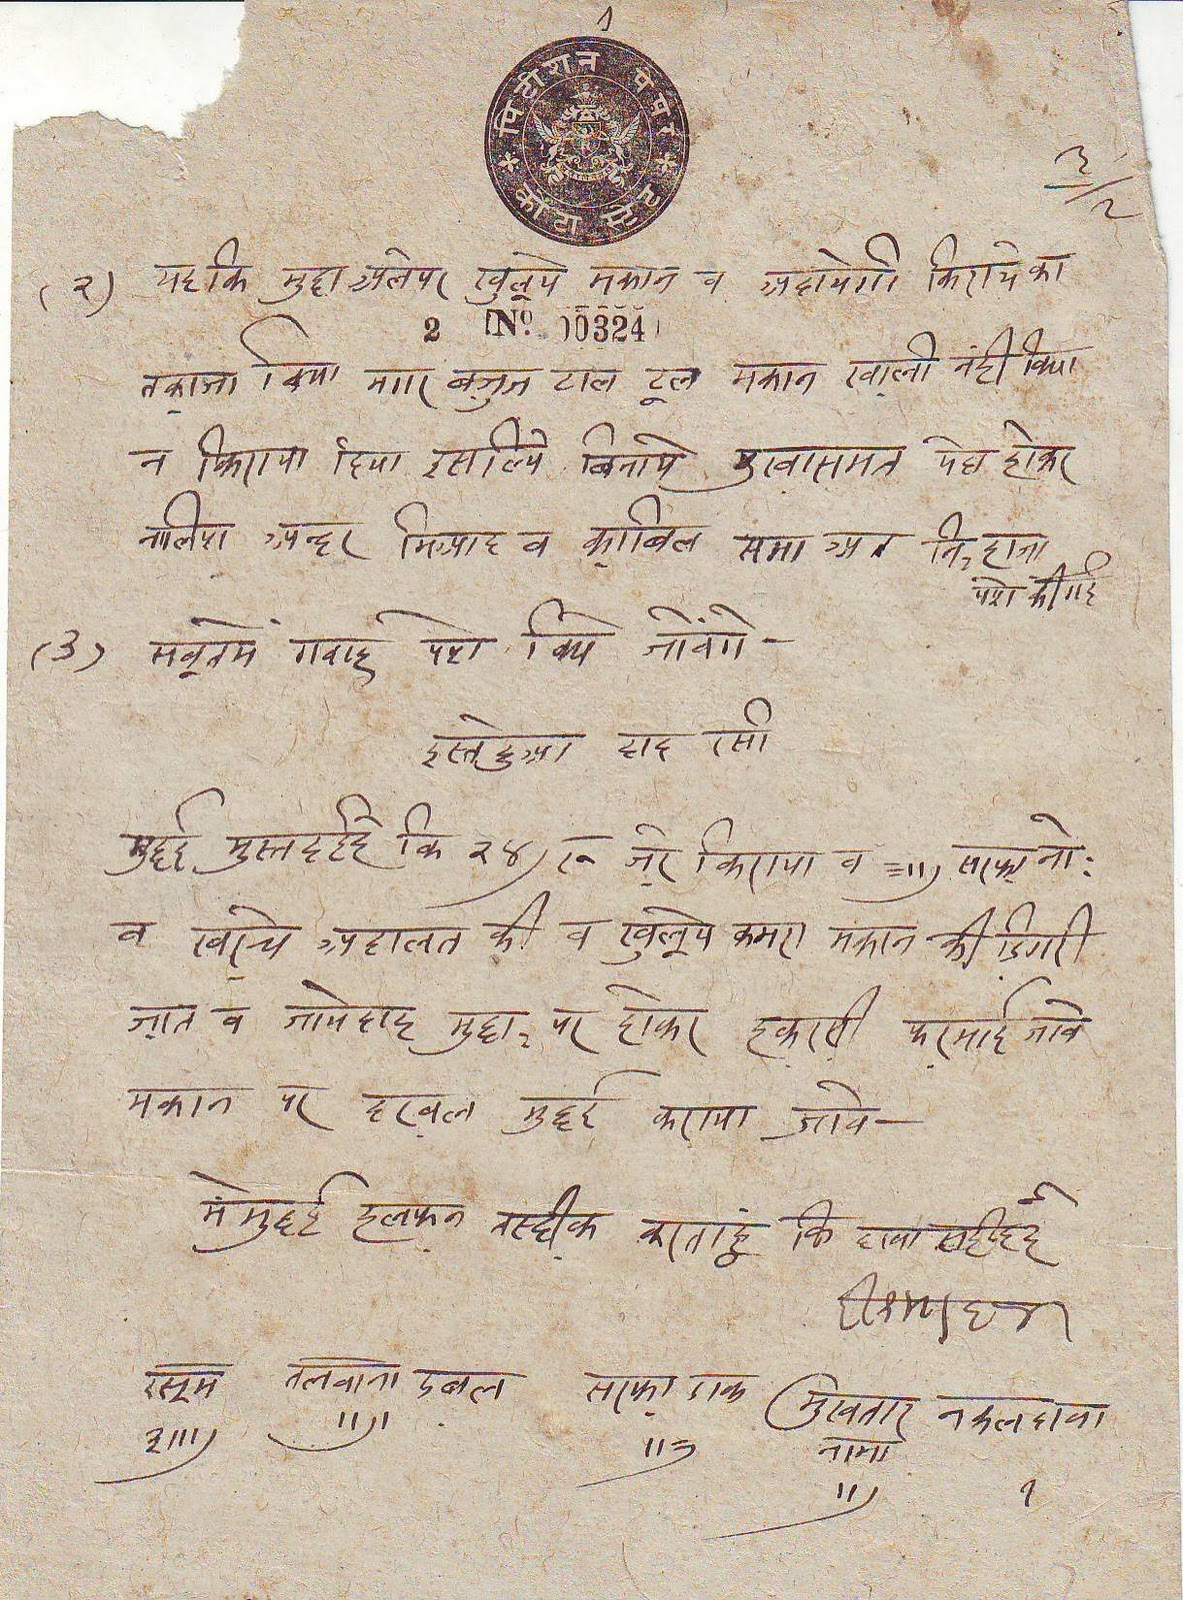 १
पिटीशन पेपर
कोटा स्टेट
३/२
(२) यह कि मुद्दाअलेपर खुलूये मकान व अदायेगी किराये का
2 No. 00324
तक़ाजा किया मगर बजुज टाल टूल मकान खा़ली नंही किया
न किराया दिया इसलिये बिनाये मुखा़समत पेदा होकर
नालिश अन्दर मिआद व का़बिल समाअत नि, हाजा
पेश की गई
(३) सबूतमें गवाह पेश किये जावेंगे-
इस्तेदुआ दाद रसी
मुद्दई मुस्तदई है कि २४) रु जे़र किराया व ≡॥) सरफा़ नो:
व खर्चे अदालत की व खुलूये कमरा मकान की डिगरी
जा़त व जायेदाद मुद्दा: पर होकर हक़रसी फ़रमाई जावे
मकान पर दख़ल मुद्दई कराया जावे-
में मुद्दई हलफ़न तस्दीक़ करता हूं कि दावा सही है
रसूम तलबाना डबल सरफा़ डाक मुखतार नकल दावा
नामा
२॥।) ॥)॥ ॥= ॥) १